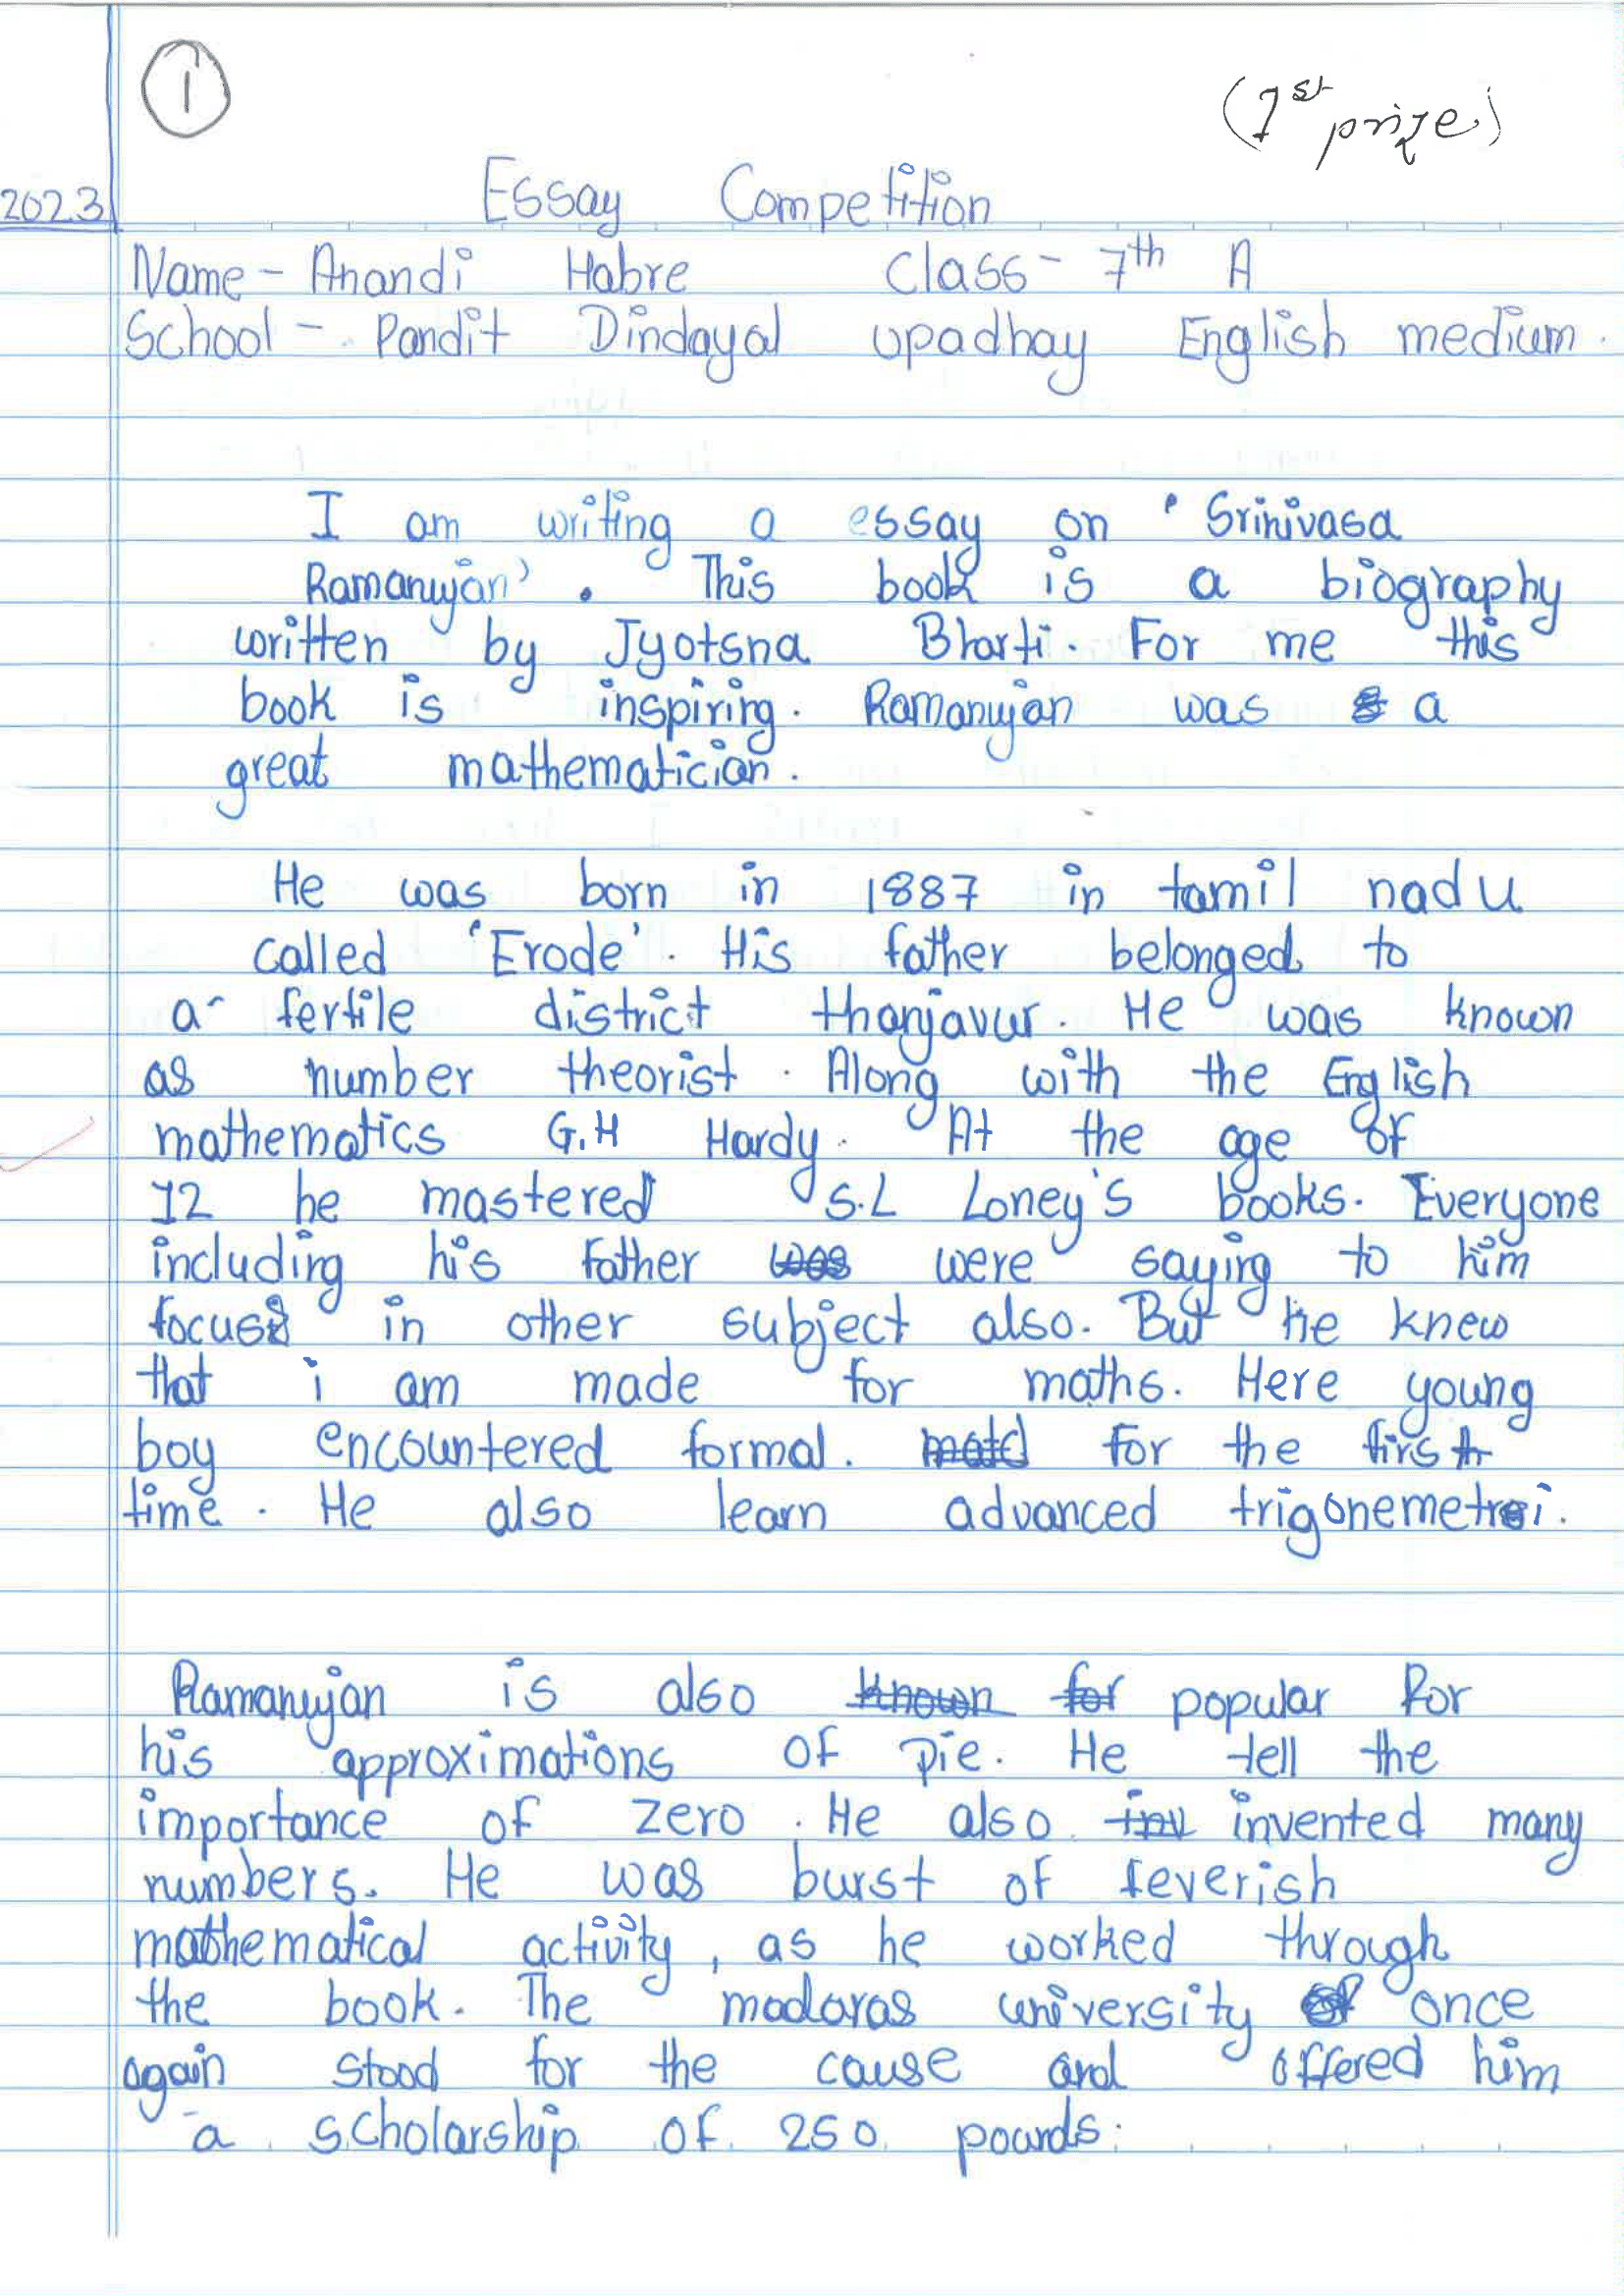 1
(1st prize)
2023 Essay Competition
Name - Anandi Habre Class - 7th A
School - Pandit Dindayal upadhay English medium.
I am writing a essay on 'Srinivasa
Ramanujan'. This book is a biography
written by Jyotsna Bharti. For me this
book is inspiring. Ramanujan was a
great mathematician.
He was born in 1887 in tamil nadu
called 'Erode'. His father belonged to
a fertile district thanjavur. He was known
as number theorist. Along with the English
mathematics G.H Hardy. At the age of
12 he mastered S.L Loney's books. Everyone
including his father was were saying to him
focus in other subject also. But he knew
that i am made for maths. Here young
boy encountered formal. for the first
time. He also learn advanced trigonemetri.
Ramanujan is also known for popular for
his approximations of pie. He tell the
importance of zero. He also inv invented many
numbers. He was burst of feverish
mathematical activity, as he worked through
the book. The madaras university once
again stood for the cause and offered him
a scholarship of 250 pounds.